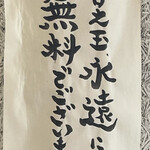 替え玉、永遠に
無料でございま